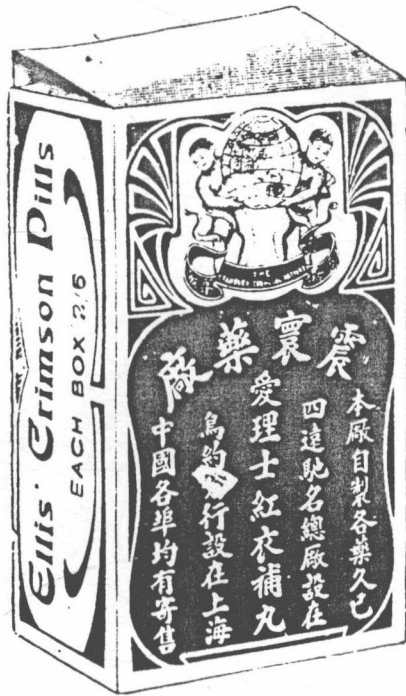 Ellis' Crimson Pills
EACH BOX 2/6
THE
震寰藥廠
本廠自製各藥久已
四遠馳名總廠設在
愛理士紅衣補丸
鳥約 行設在上海
中國各埠均有寄售